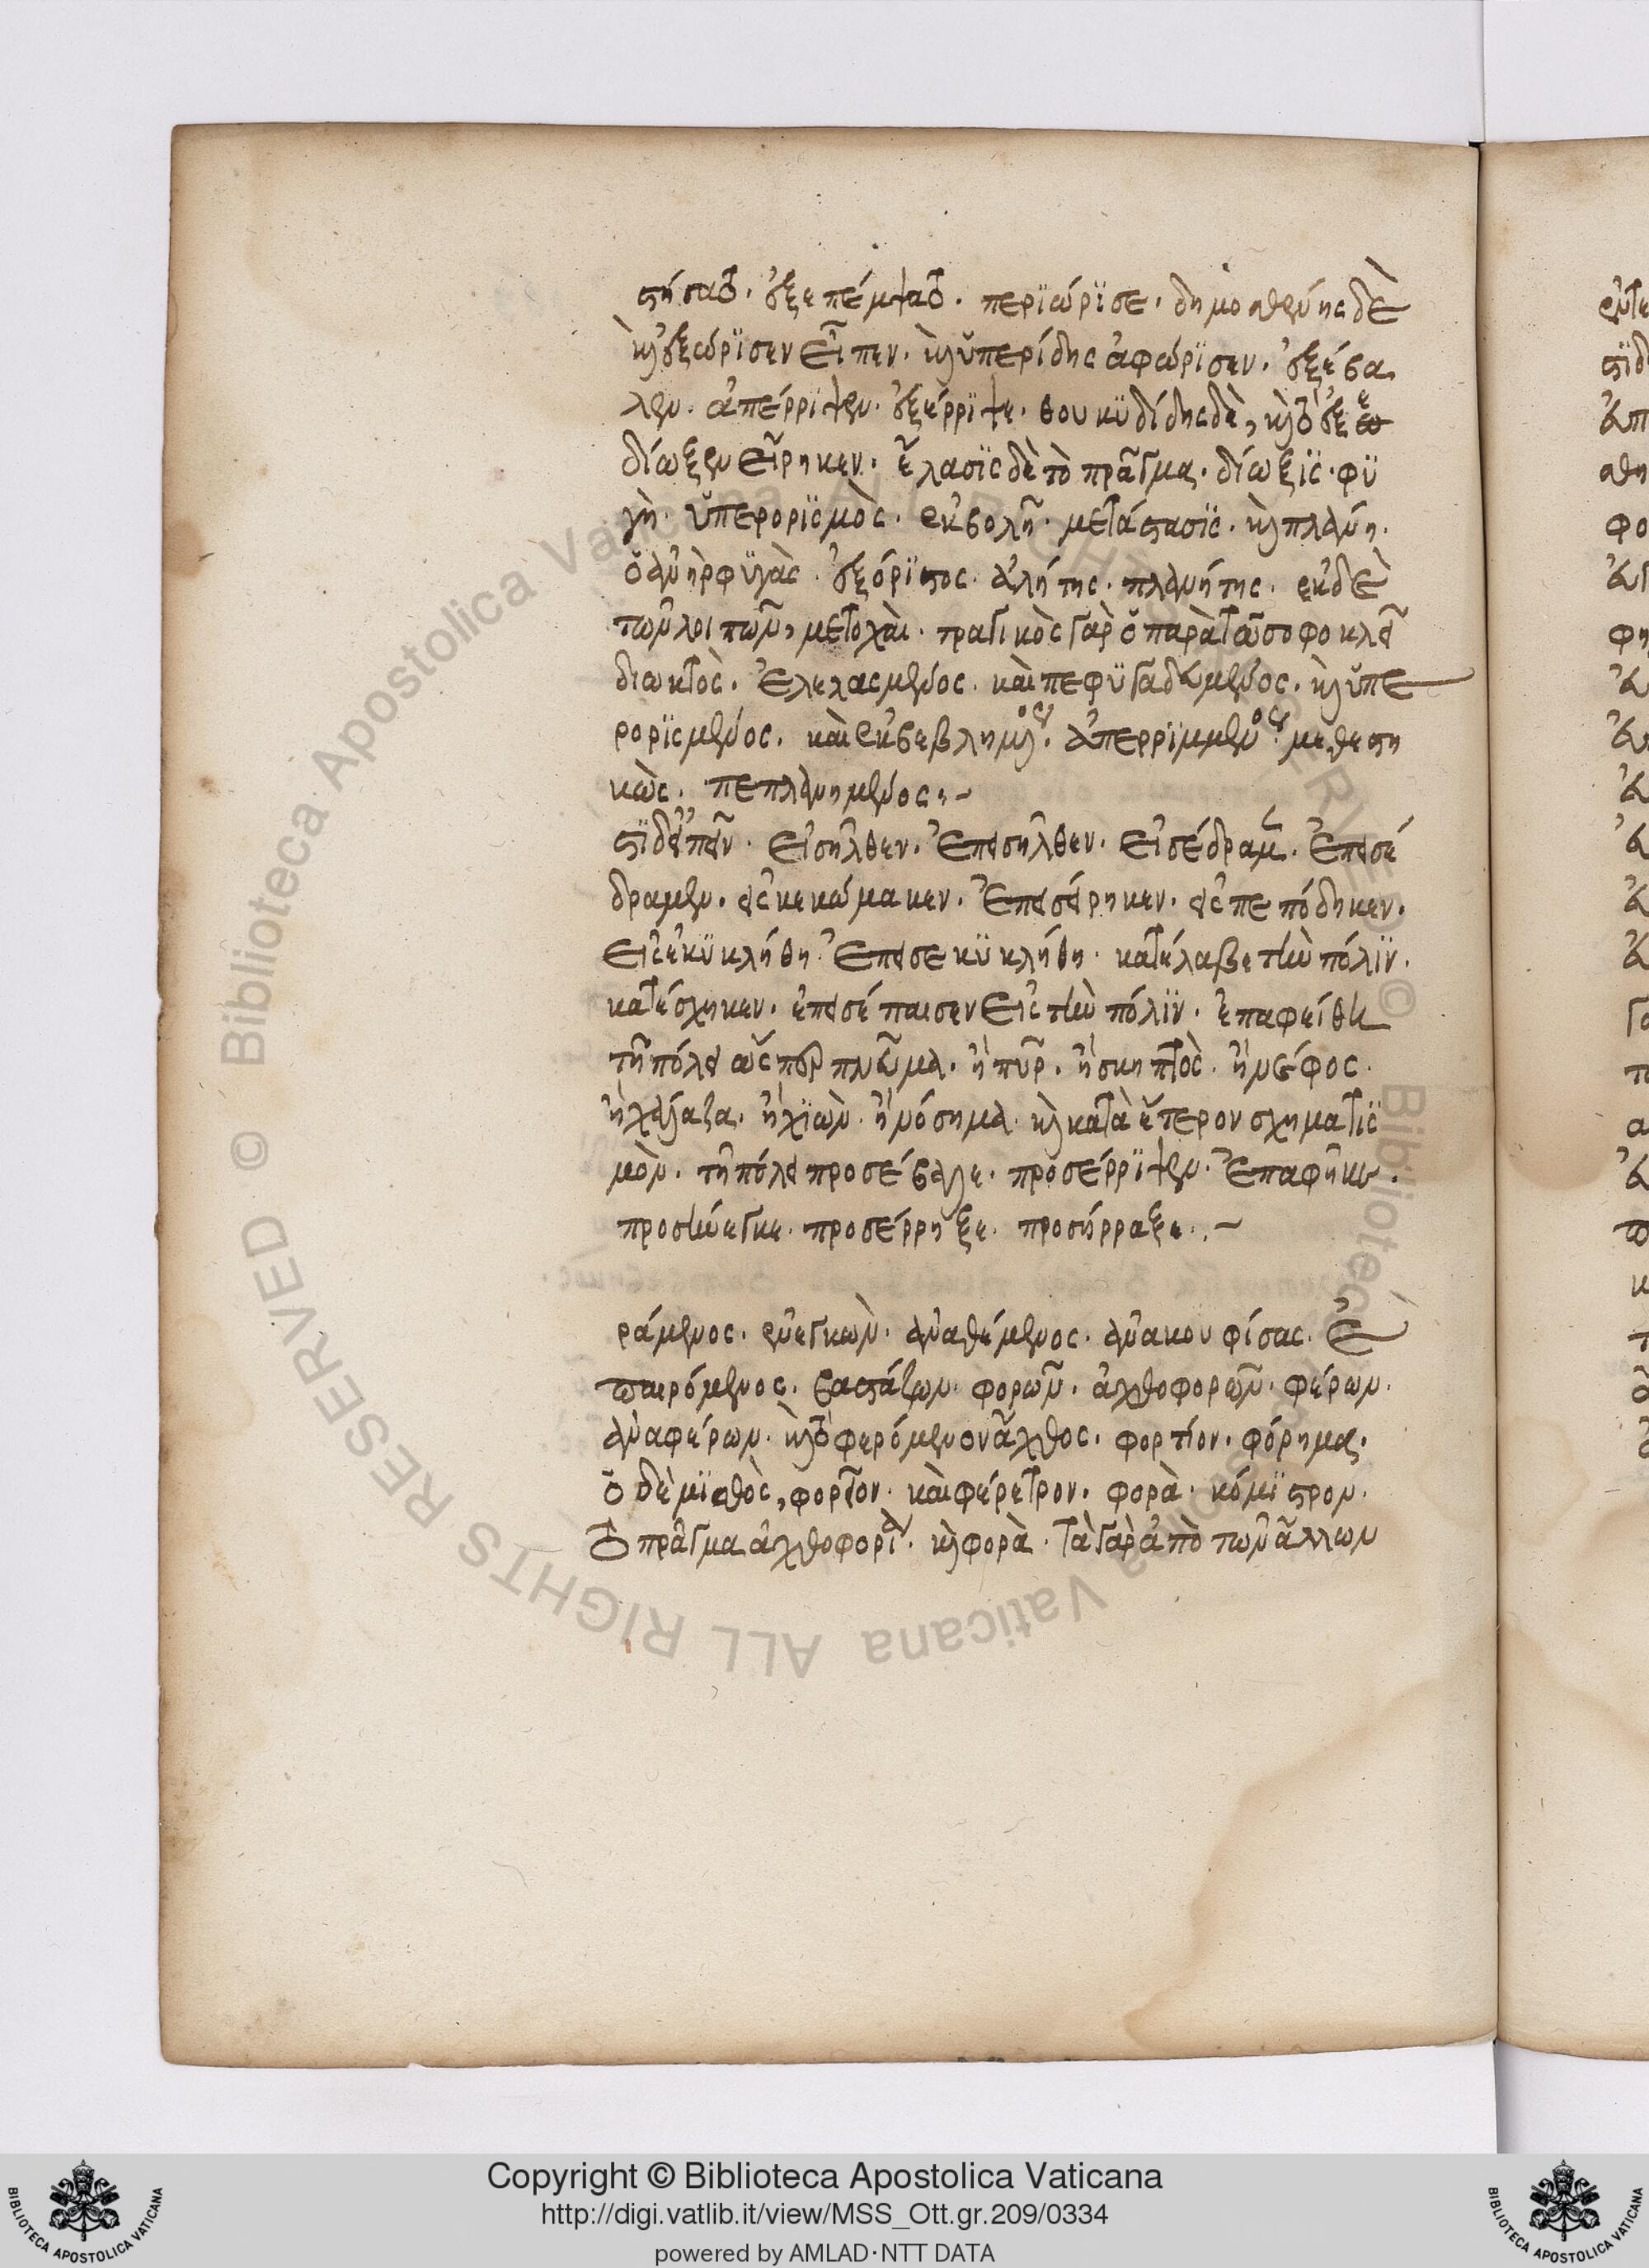 στήσατο. ἐξεπέμψατο. περϊώρϊσε. δημοσθένης δὲ
καὶ ἐξώρϊσεν εἶπεν. καὶ ὑπερίδης ἀφώρϊσεν. ἐξέβα
λεν. ἀπέρρϊψεν. ἐξέρρϊψε. θουκϋδίδης δὲ, καὶ τὸ
δίωξεν εἴρηκεν. ἔλασϊς δὲ τὸ πρᾶγμα. δίωξϊς. φϋ
γὴ. ὑπερορϊσμὸς. ἐκβολὴ. μετάστασϊς. καὶ πλάνη.
ὁ ἀνὴρ φϋγὰς. ἐξόρϊστος. ἀλήτης. πλανήτης. ἐκ δὲ
τῶν λοιπῶν, μετοχὰι. τραγικὸς γὰρ ὁ παρὰ τῶ σοφοκλεῖ
διωκτὸς. ἐληλασμένος. καὶ πεφϋγαδευμένος. καὶ ὑπε
ρορϊσμένος. καὶ ἐκβεβλημένος. ἀπερρϊμμένος. μεθεστη
κὼς. πεπλανημένος.
εἰσῆλθεν. ἐπεισῆλθεν. εἰσέδραμεν. ἐπεισέ
δραμεν. εἰσκεκώμακεν. ἐπεισέρηκεν. εἰσπεπόδηκεν.
εἰσεκϋκλήθη. ἐπεισεκϋκλήθη. κατέλαβε τὴν πόλϊν.
κατέσχηκεν. ἐπεισέπαισεν εἰς τὴν πόλϊν. ἐπαφείθη
τῆ πόλει ὥσπερ πνεῦμα. ἢ πῦρ. ἢ σκηπτὸς. ἢ νέφος.
ἢ χάλαζα. ἢ χϊὼν. ἢ νόσημα. καὶ κατὰ ἕτερον σχηματϊσ
μὸν. τῆ πόλει προσέβαλε. προσέρρϊψεν. ἐπαφῆκεν.
προσήνεγκε. προσέρρηξε. προσήρραξε.
ράμενος. ἐνεγκὼν. ἀναθέμενος. ἀνακουφίσας. ἐ
παιρόμενος. βαστάζων. φορῶν. ἀχθοφορῶν. φέρων.
ἀναφέρων. καὶ τὸ φερόμενον ἄχθος. φορτίον. φόρημα.
ὁ δὲ μϊσθὸς, φόρετρον. καὶ φέρετρον. φορὰ. κόμϊστρον.
τὸ πρᾶγμα ἀχθοφορία. καὶ φορὰ. τὰ γὰρ ἀπὸ τῶν ἄλλων
Copyright © Biblioteca Apostolica Vaticana
http://digi.vatlib.it/view/MSS_Ott.gr.209/0334
powered by AMLAD·NTT DATA